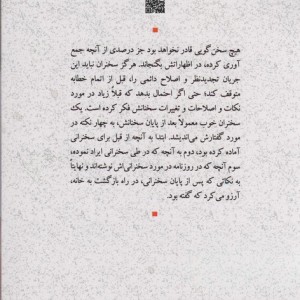 هیچ سخن‌گویی قادر نخواهد بود جز درصدی از آنچه جمع
آوری کرده، در اظهاراتش بگنجاند. هرگز سخنران نباید این
جریان تجدیدنظر و اصلاح دائمی را، قبل از اتمام خطابه
متوقف کند؛ حتی اگر احتمال بدهد که قبلاً زیاد در مورد
نکات و اصلاحات و تغییرات سخنانش فکر کرده است. یک
سخنران خوب معمولاً بعد از پایان سخنانش، به چهار نکته در
مورد گفتارش می‌اندیشد. ابتدا به آنچه از قبل برای سخنرانی
آماده کرده بود، دوم به آنچه که در طی سخنرانی ایراد نموده،
سوم آنچه که در روزنامه در مورد سخنرانی‌اش نوشته‌اند و نهایتاً
به نکاتی که پس از پایان سخنرانی، در راه بازگشت به خانه،
آرزو می‌کرد که گفته بود.